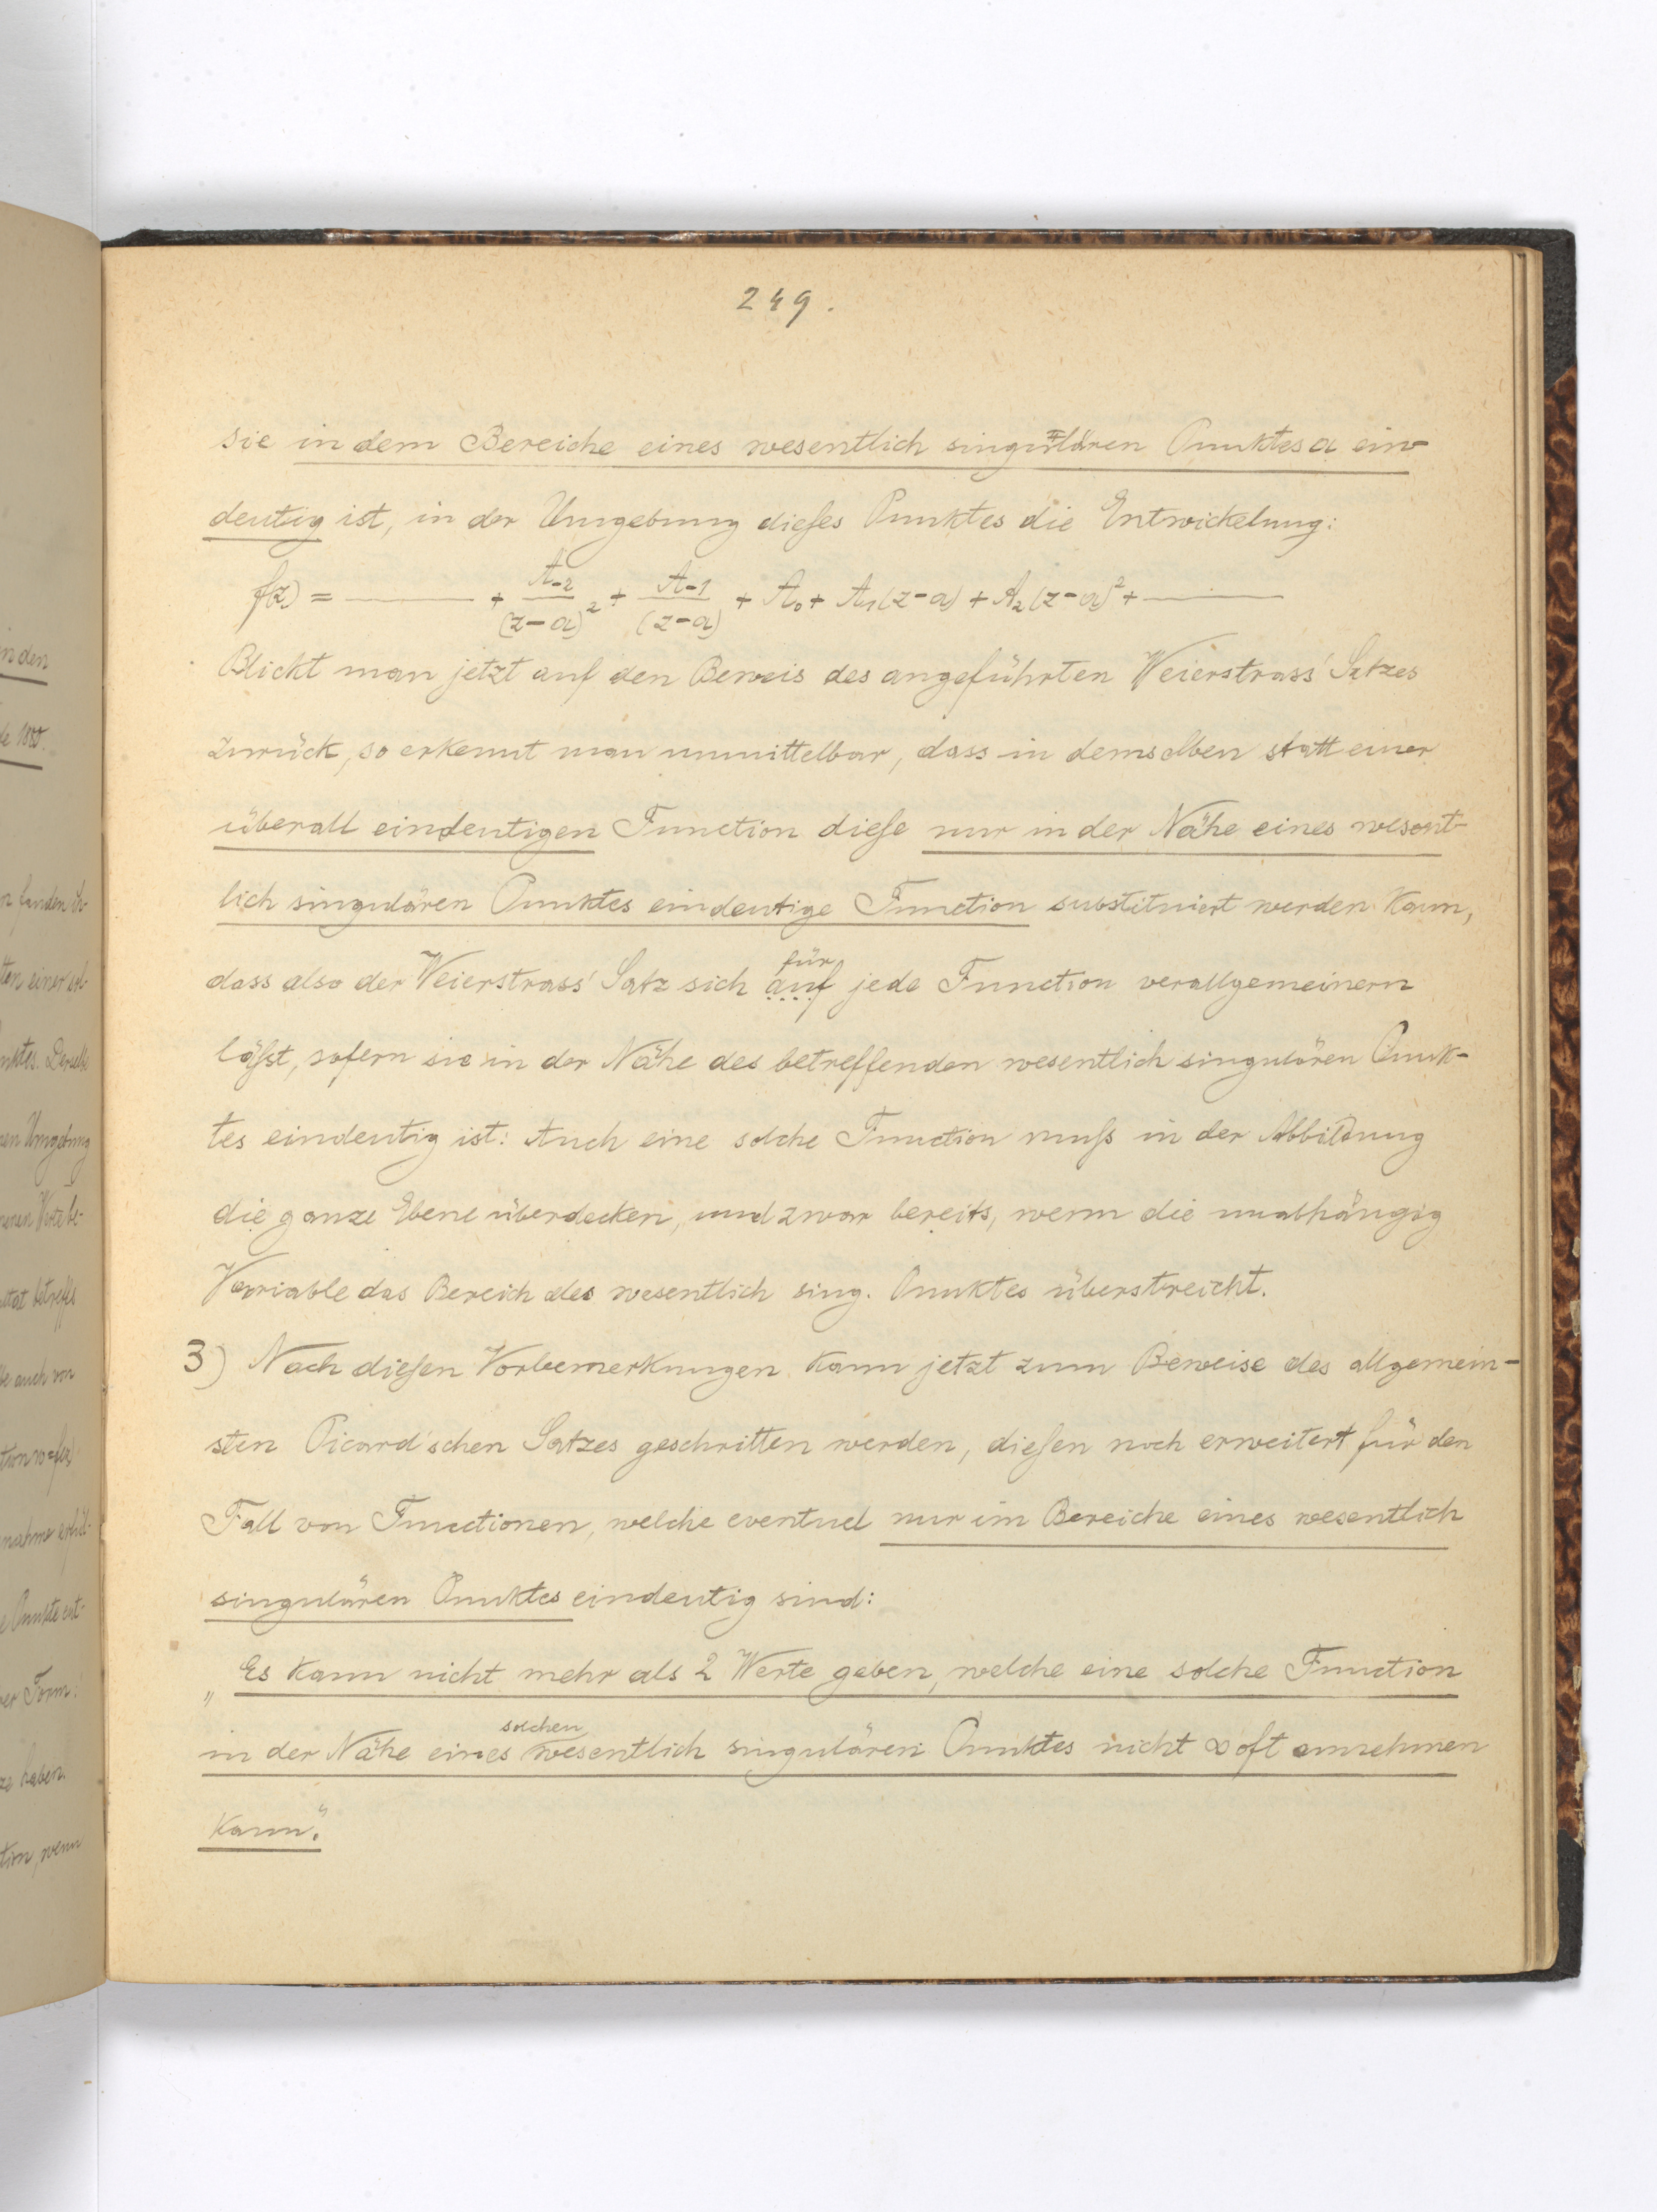 249.
sie in dem Bereiche eines wesentlich singulären Punktes a ein-
deutig ist, in der Umgebung dieses Punktes die Entwickelung:
f(z) = ——— + A-2/(z-a)² + A-1/(z-a) + A0 + A1(z-a) + A2(z-a)² + ———
Blickt man jetzt auf den Beweis des angeführten Weierstrass' Satzes
zurück, so erkennt man unmittelbar, dass in demselben statt einer
überall eindeutigen Function diese nur in der Nähe eines wesent-
lich singulären Punktes eindeutige Function substituiert werden kann,
für
dass also der Weierstrass' Satz sich auf jede Function verallgemeinern
läßt, sofern sie in der Nähe des betreffenden wesentlich singulären Punk-
tes eindeutig ist: Auch eine solche Function muß in der Abbildung
die ganze Ebene überdecken, und zwar bereits, wenn die unabhängig
Variable das Bereich des wesentlich sing. Punktes überstreicht.
3) Nach diesen Vorbemerkungen kann jetzt zum Beweise des allgemein-
sten Picard'schen Satzes geschritten werden, diesen noch erweitert für den
Fall von Functionen, welche eventuel nur im Bereiche eines wesentlich
singulären Punktes eindeutig sind:
„Es kann nicht mehr als 2 Werte geben, welche eine solche Function
solchen
in der Nähe eines wesentlich singulären Punktes nicht ∞ oft annehmen
kann."